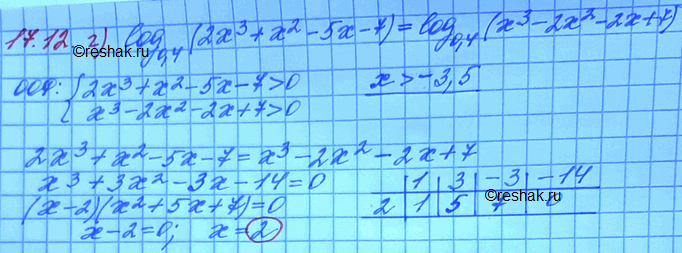 17.12 г) log₀,₄(2x³+x²-5x-7)=log₀,₄(x³-2x²-2x+7)
©reshak.ru
ООФ: {2x³+x²-5x-7>0 x>-3,5
x³-2x²-2x+7>0
2x³+x²-5x-7=x³-2x²-2x+7
x³+3x²-3x-14=0 | 1 | 3 | -3 | -14
©reshak.ru
(x-2)(x²+5x+7)=0 2 | 1 | 5 | 7 | 0
©reshak.ru
x-2=0; x=2